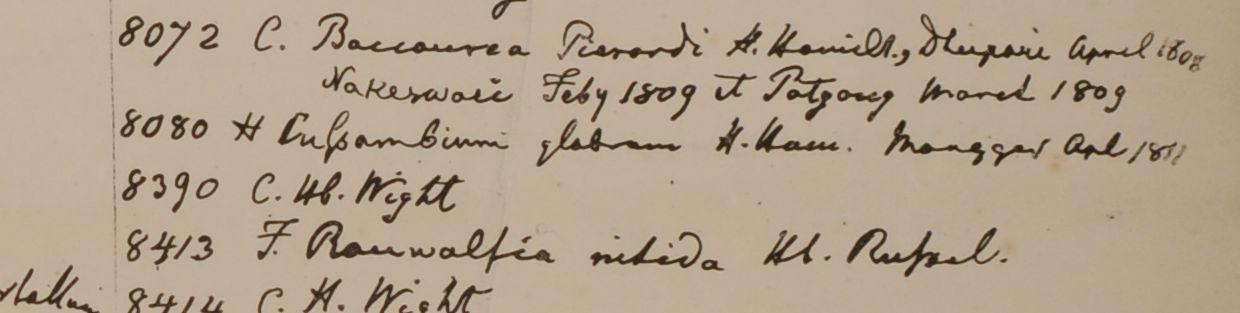 8072 C. Baccaurea Pierardi H. Hamilt., Dhupaii April 1808
Nakeswaii Feby 1809 et Patgong March 1809
8080 H Cuſsambium glabrum H. Ham. Mongger Apl 1811
8390 C. Hb. Wight
8413 F. Rauwolfia nitida Hb. Ruſsel.
8414 C. H. Wight